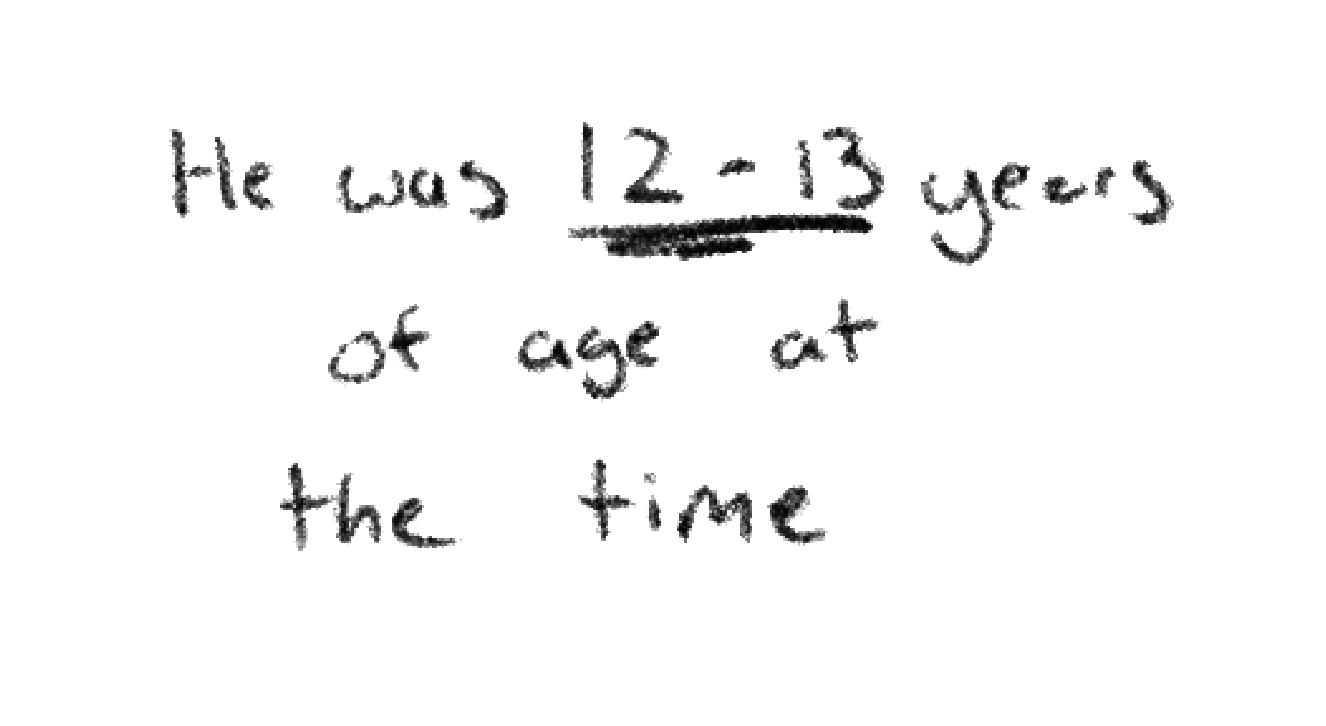 He was 12 - 13 years
of age at
the time